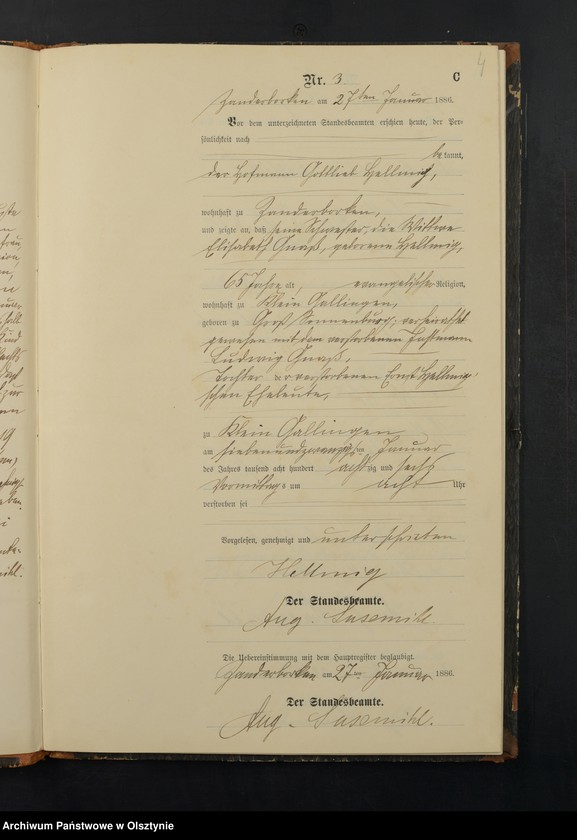 4
Nr. 3 C
Zanderborken am 27ten Januar 1886.
Vor dem unterzeichneten Standesbeamten erschien heute, der Per-
sönlichkeit nach
be kannt,
der Hofmann Gottlieb Hellmig,
wohnhaft zu Zanderborken,
und zeigte an, daß seine Schwester, die Wittwe
Elisabeth Gnaß, geborene Hellmig,
65 Jahre alt, evangelischer Religion,
wohnhaft zu Klein Gallingen,
geboren zu Groß Sonnenburg; verheirathet
gewesen mit dem verstorbenen Instmann
Ludwig Gnaß,
Tochter der verstorbenen Ernst Hellmig'
schen Eheleute,
zu Klein Gallingen
am siebenundzwanzigsten Januar
des Jahres tausend acht hundert achtzig und sechs
Vormittags um acht Uhr
verstorben sei
Vorgelesen, genehmigt und unterschrieben
Hellmig
Der Standesbeamte.
Aug. Sussmihl.
Die Uebereinstimmung mit dem Hauptregister beglaubigt.
Zanderborken am 27ten Januar 1886.
Der Standesbeamte.
Aug. Sussmihl.
Archiwum Państwowe w Olsztynie